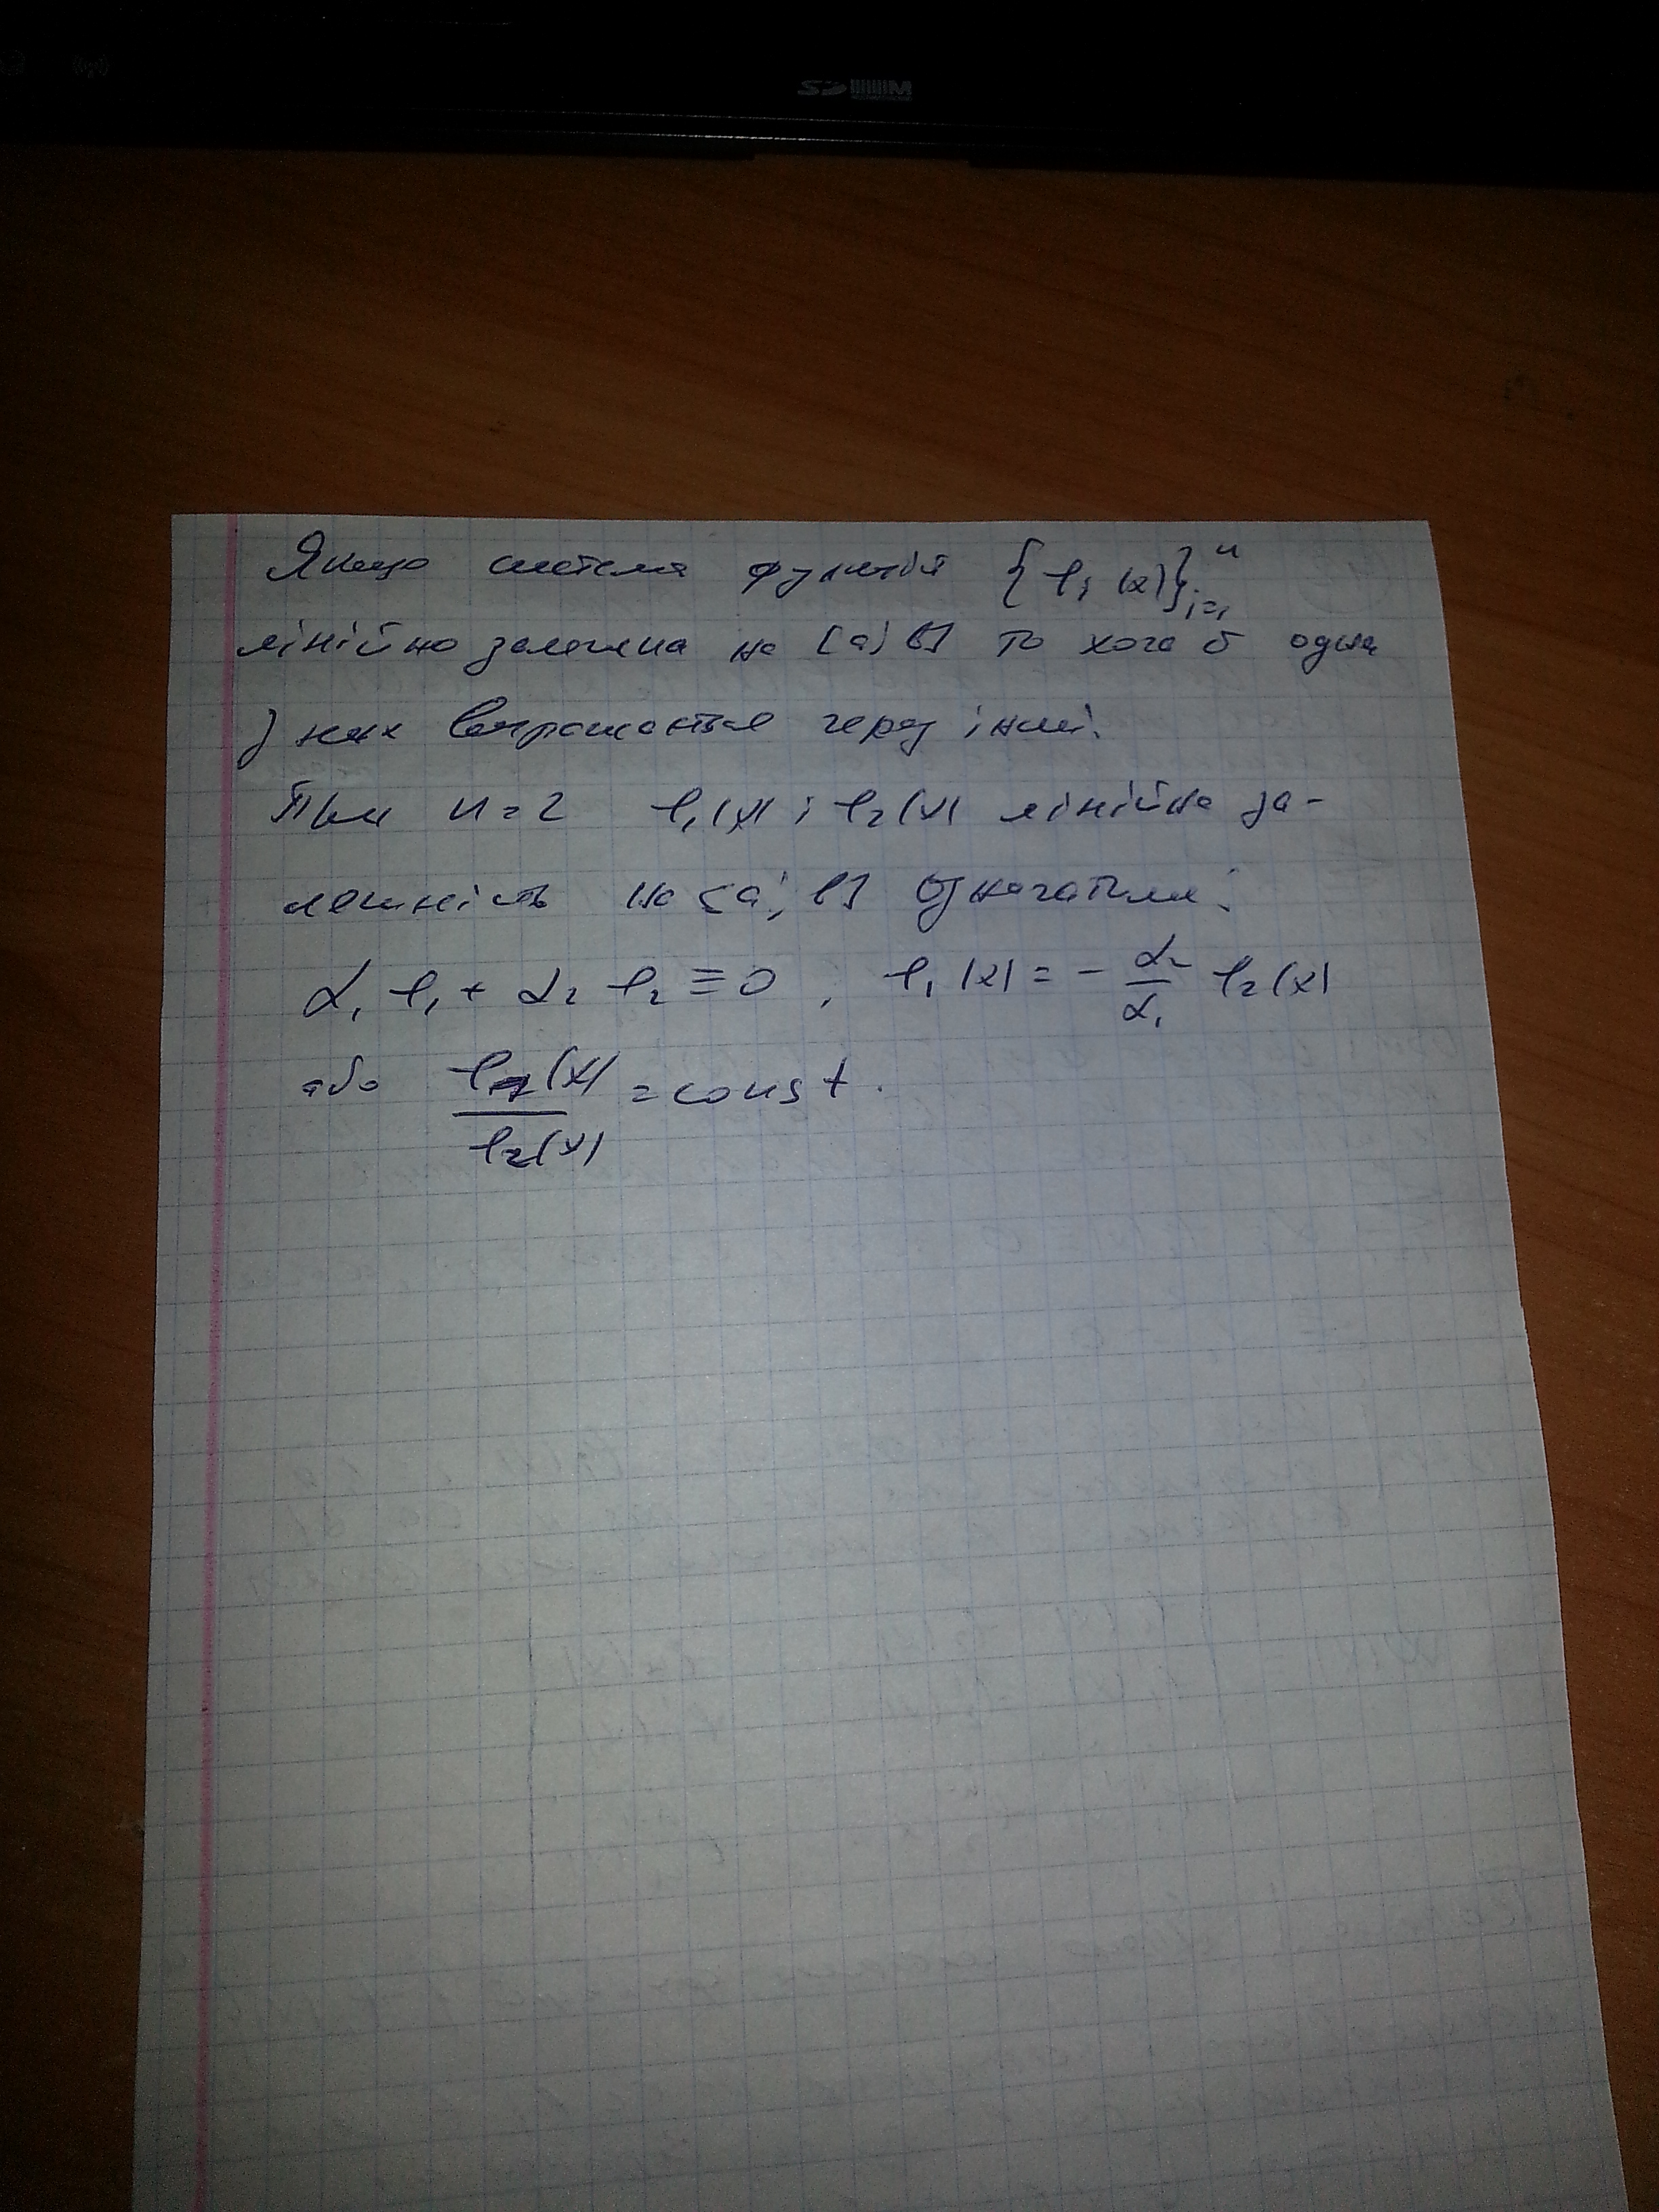 Якщо система функцій {φᵢ(x)}ⁿᵢ₌₁
лінійно залежна на [a; b] то хоча б одна
з них виражається через інші.
При n = 2 φ₁(x) і φ₂(x) лінійна за-
лежність на [a; b] означатиме:
α₁ φ₁ + α₂ φ₂ ≡ 0, φ₁(x) = - α₂/α₁ φ₂(x)
або φ₁(x)/φ₂(x) = const.